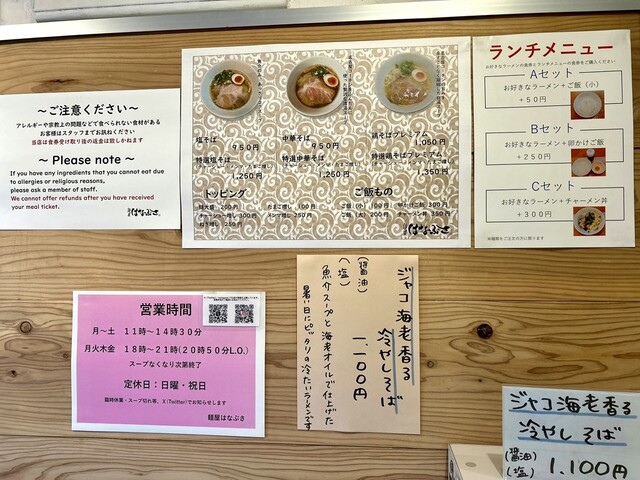 ～ご注意ください～
アレルギーや宗教上の問題などで食べられない食材がある
お客様はスタッフまでお訊ねください
当店は食券受け取り後の返金は致しかねます
～ Please note ～
If you have any ingredients that you cannot eat due
to allergies or religious reasons,
please ask a member of staff.
We cannot offer refunds after you have received
your meal ticket.
はなぶさ
塩そば
950円
特選塩そば
1,250円
中華そば
950円
特選中華そば
1,250円
鶏そばプレミアム
1,050円
特選鶏そばプレミアム
1,350円
トッピング
味玉 100円
チャーシュー増し 300円
メンマ増し 250円
ねぎ増し 250円
ご飯もの
ご飯（小）100円
ご飯（大）200円
卵かけご飯 300円
チャーメン丼 350円
はなぶさ
ランチメニュー
お好きなラーメンの食券とランチメニューの食券をご購入ください
Aセット
お好きなラーメン＋ご飯（小）
＋50円
Bセット
お好きなラーメン＋卵かけご飯
＋250円
Cセット
お好きなラーメン＋チャーメン丼
＋300円
※麺類をご注文の方に限ります
営業時間
月～土 11時～14時30分
月火木金 18時～21時(20時50分L.O.)
スープなくなり次第終了
定休日：日曜・祝日
臨時休業・スープ切れ等、X(Twitter)でお知らせします
麺屋はなぶさ
ジャコ海老香る
冷やしそば
1,100円
(醤油)
(塩)
魚介スープと海老オイルで仕上げた
暑い日にピッタリの冷たいラーメンです
ジャコ海老香る
冷やしそば
(醤油)
(塩) 1,100円